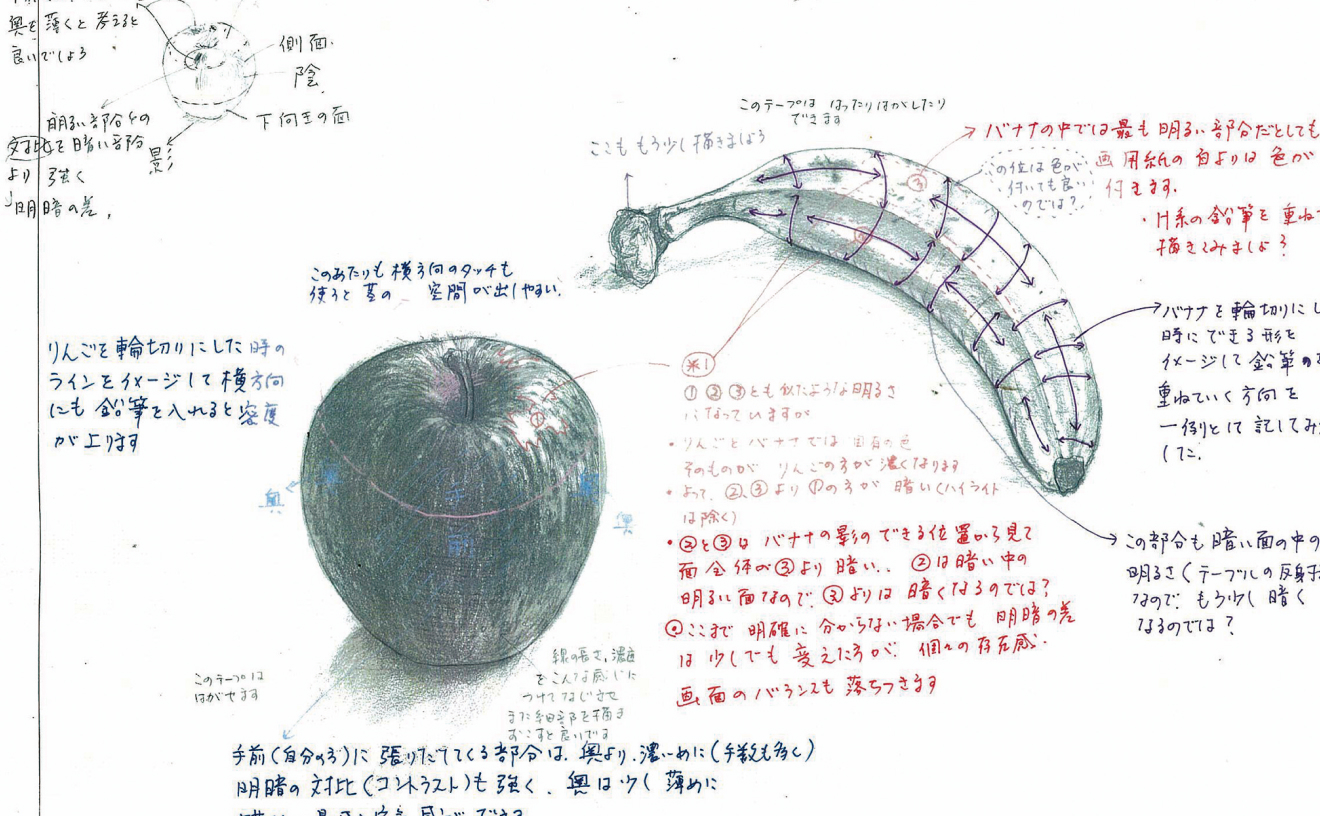 奥を薄くと考えると
良いでしょう
側面
陰
下向きの面
影
明るい部分の
対比を暗い部分
より強く
明暗の差。
このテープははったりはがしたり
できます
ここももう少し描きましょう
バナナの中では最も明るい部分だとしても
画用紙の白よりは色が
付きます。
・H系の鉛筆を重ねて
描きてみましょう?
の位は色が
付いても良い
のでは?
③
②
このあたりも横方向のタッチも
使うと茎の 空間が出しやすい。
りんごを輪切りにした時の
ラインをイメージして横方向
にも鉛筆を入れると密度
が上ります
①
奥
手
前
奥
※1
①②③とも似たような明るさ
になっていますが
・りんごとバナナでは固有の色
そのものがりんごの方が濃くなります
・よって、②、③より①の方が暗い(ハイライト
は除く)
・②と③はバナナの影のできる位置から見て
面全体が③より暗い、、②は暗い中の
明るい面なので、③よりは暗くなるのでは?
◎ここまで明確に分からない場合でも明暗の差
は少しでも変えた方が、個々の存在感・
画面のバランスも落ちつきます
バナナを輪切りにし
時にできる形を
イメージして鉛筆の
重ねていく方向を
一例として記してみ
した。
この部分も暗い面の中の
明るさ(テーブルの反射
なので、もう少し暗く
なるのでは?
このテープは
はがせます
線の長さ、濃度
をこんな感じに
つけてなじませ
また細部を描き
おこすと良いです
手前(自分の方)に張りだしてくる部分は、奥より、濃いめに(手数も多く)
明暗の対比(コントラスト)も強く、奥は少し薄めに